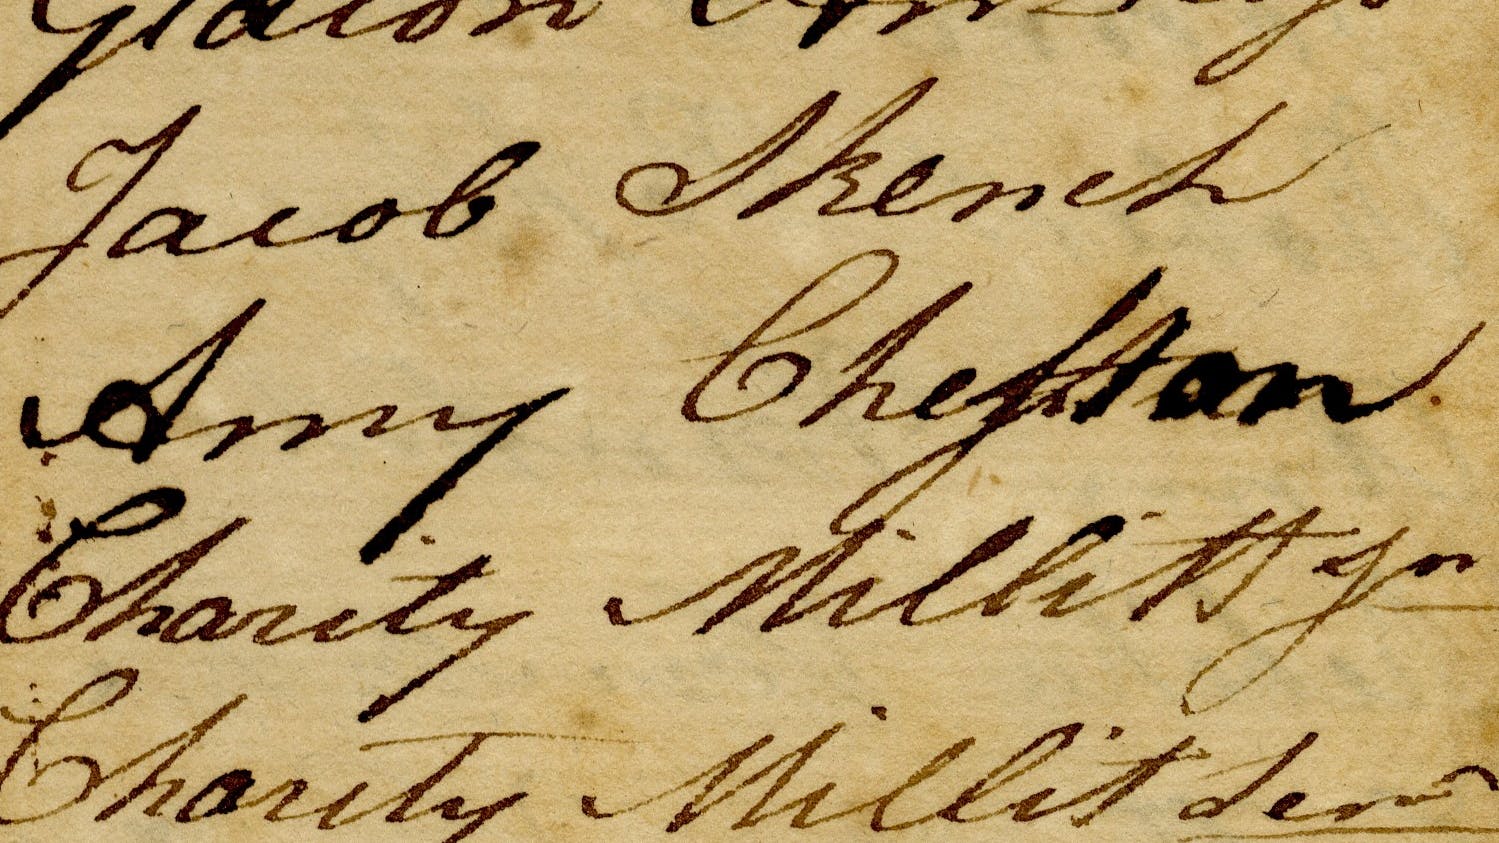 Gideon
Jacob Skench
Amy Chesston
Charity Millitt Jn
Charity Millit Sen